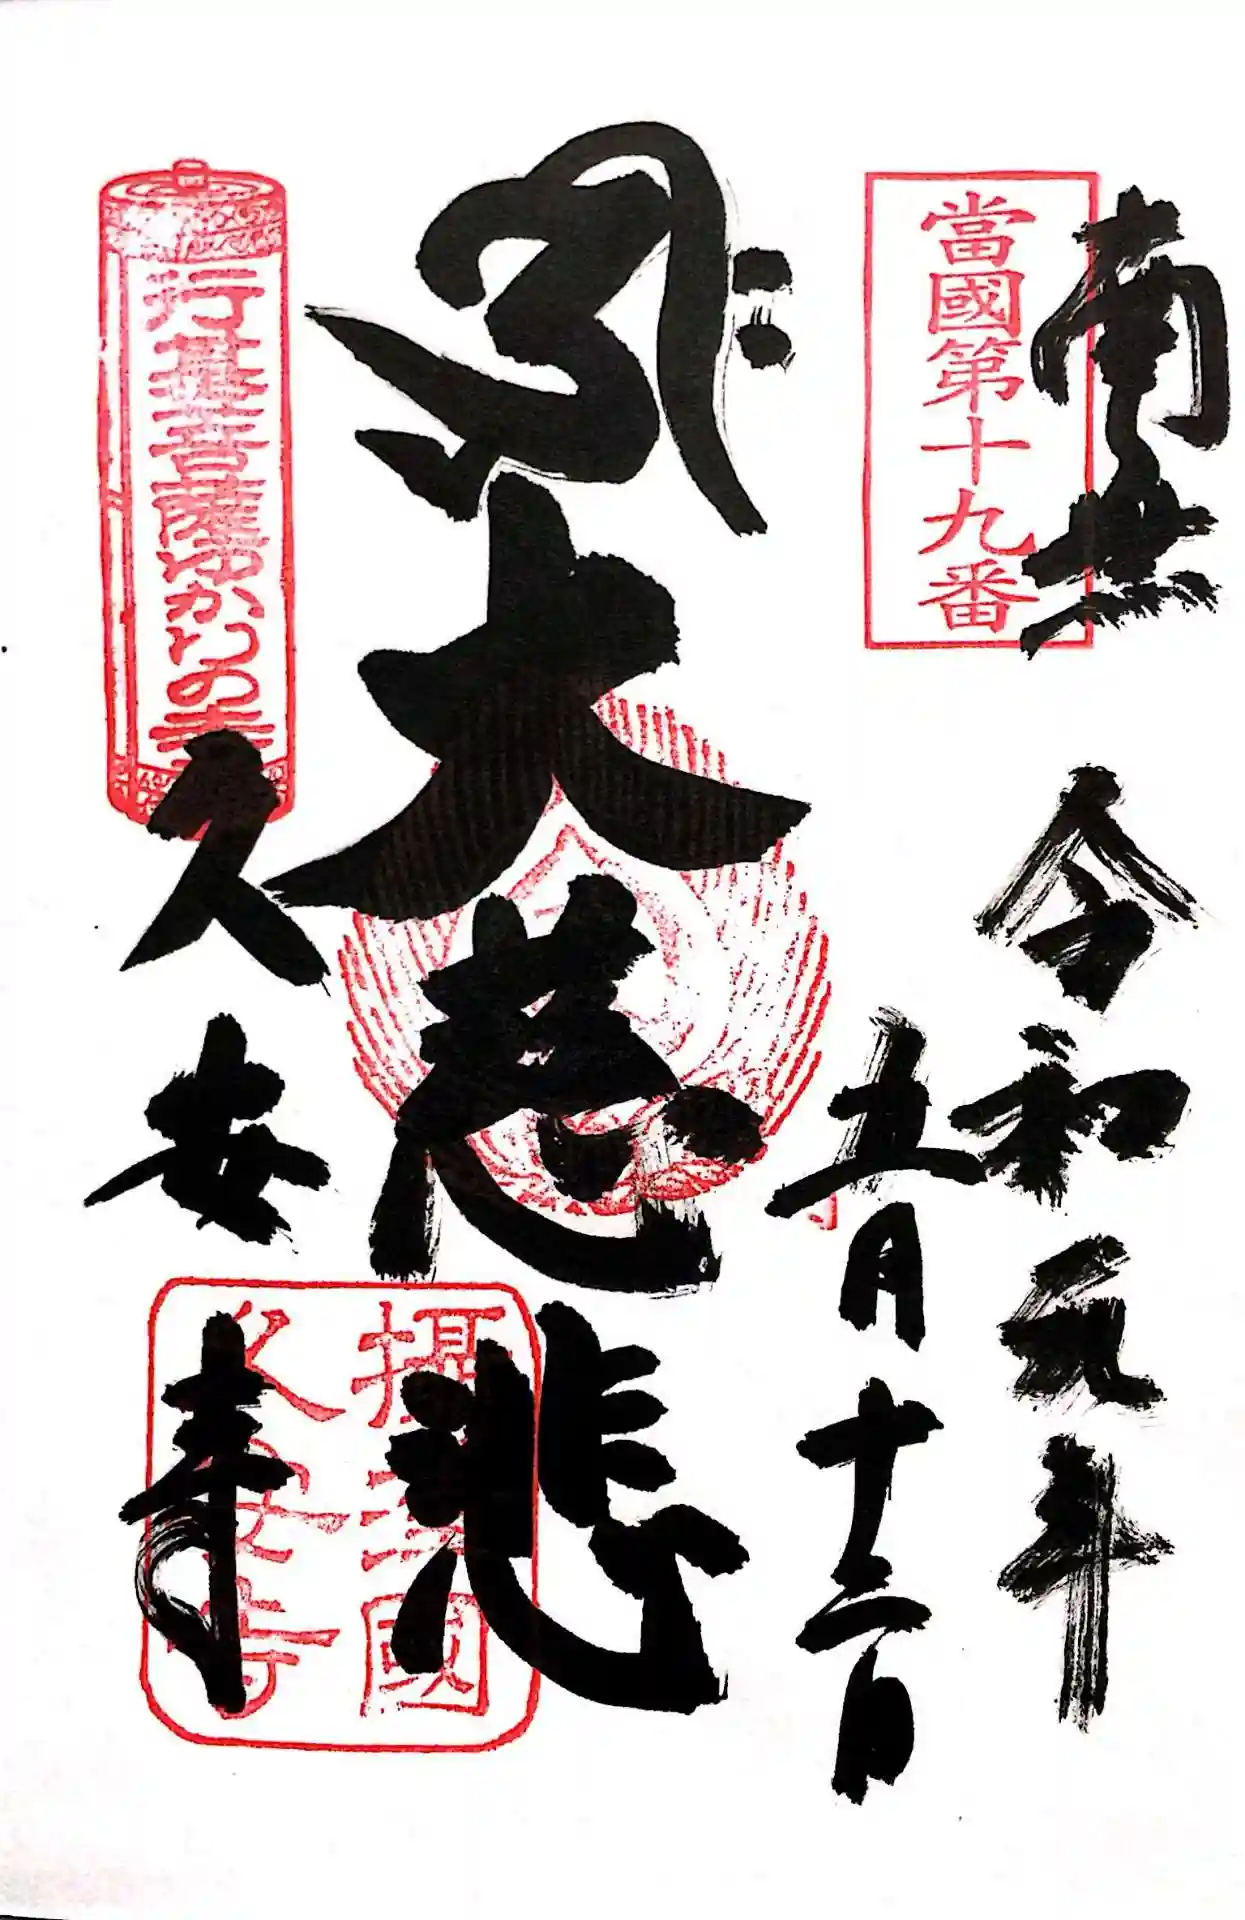 南無
當國第十九番
令和元年
五月十三日
大慈悲
行基菩薩ゆかりの寺
久安寺
攝津國
久安寺